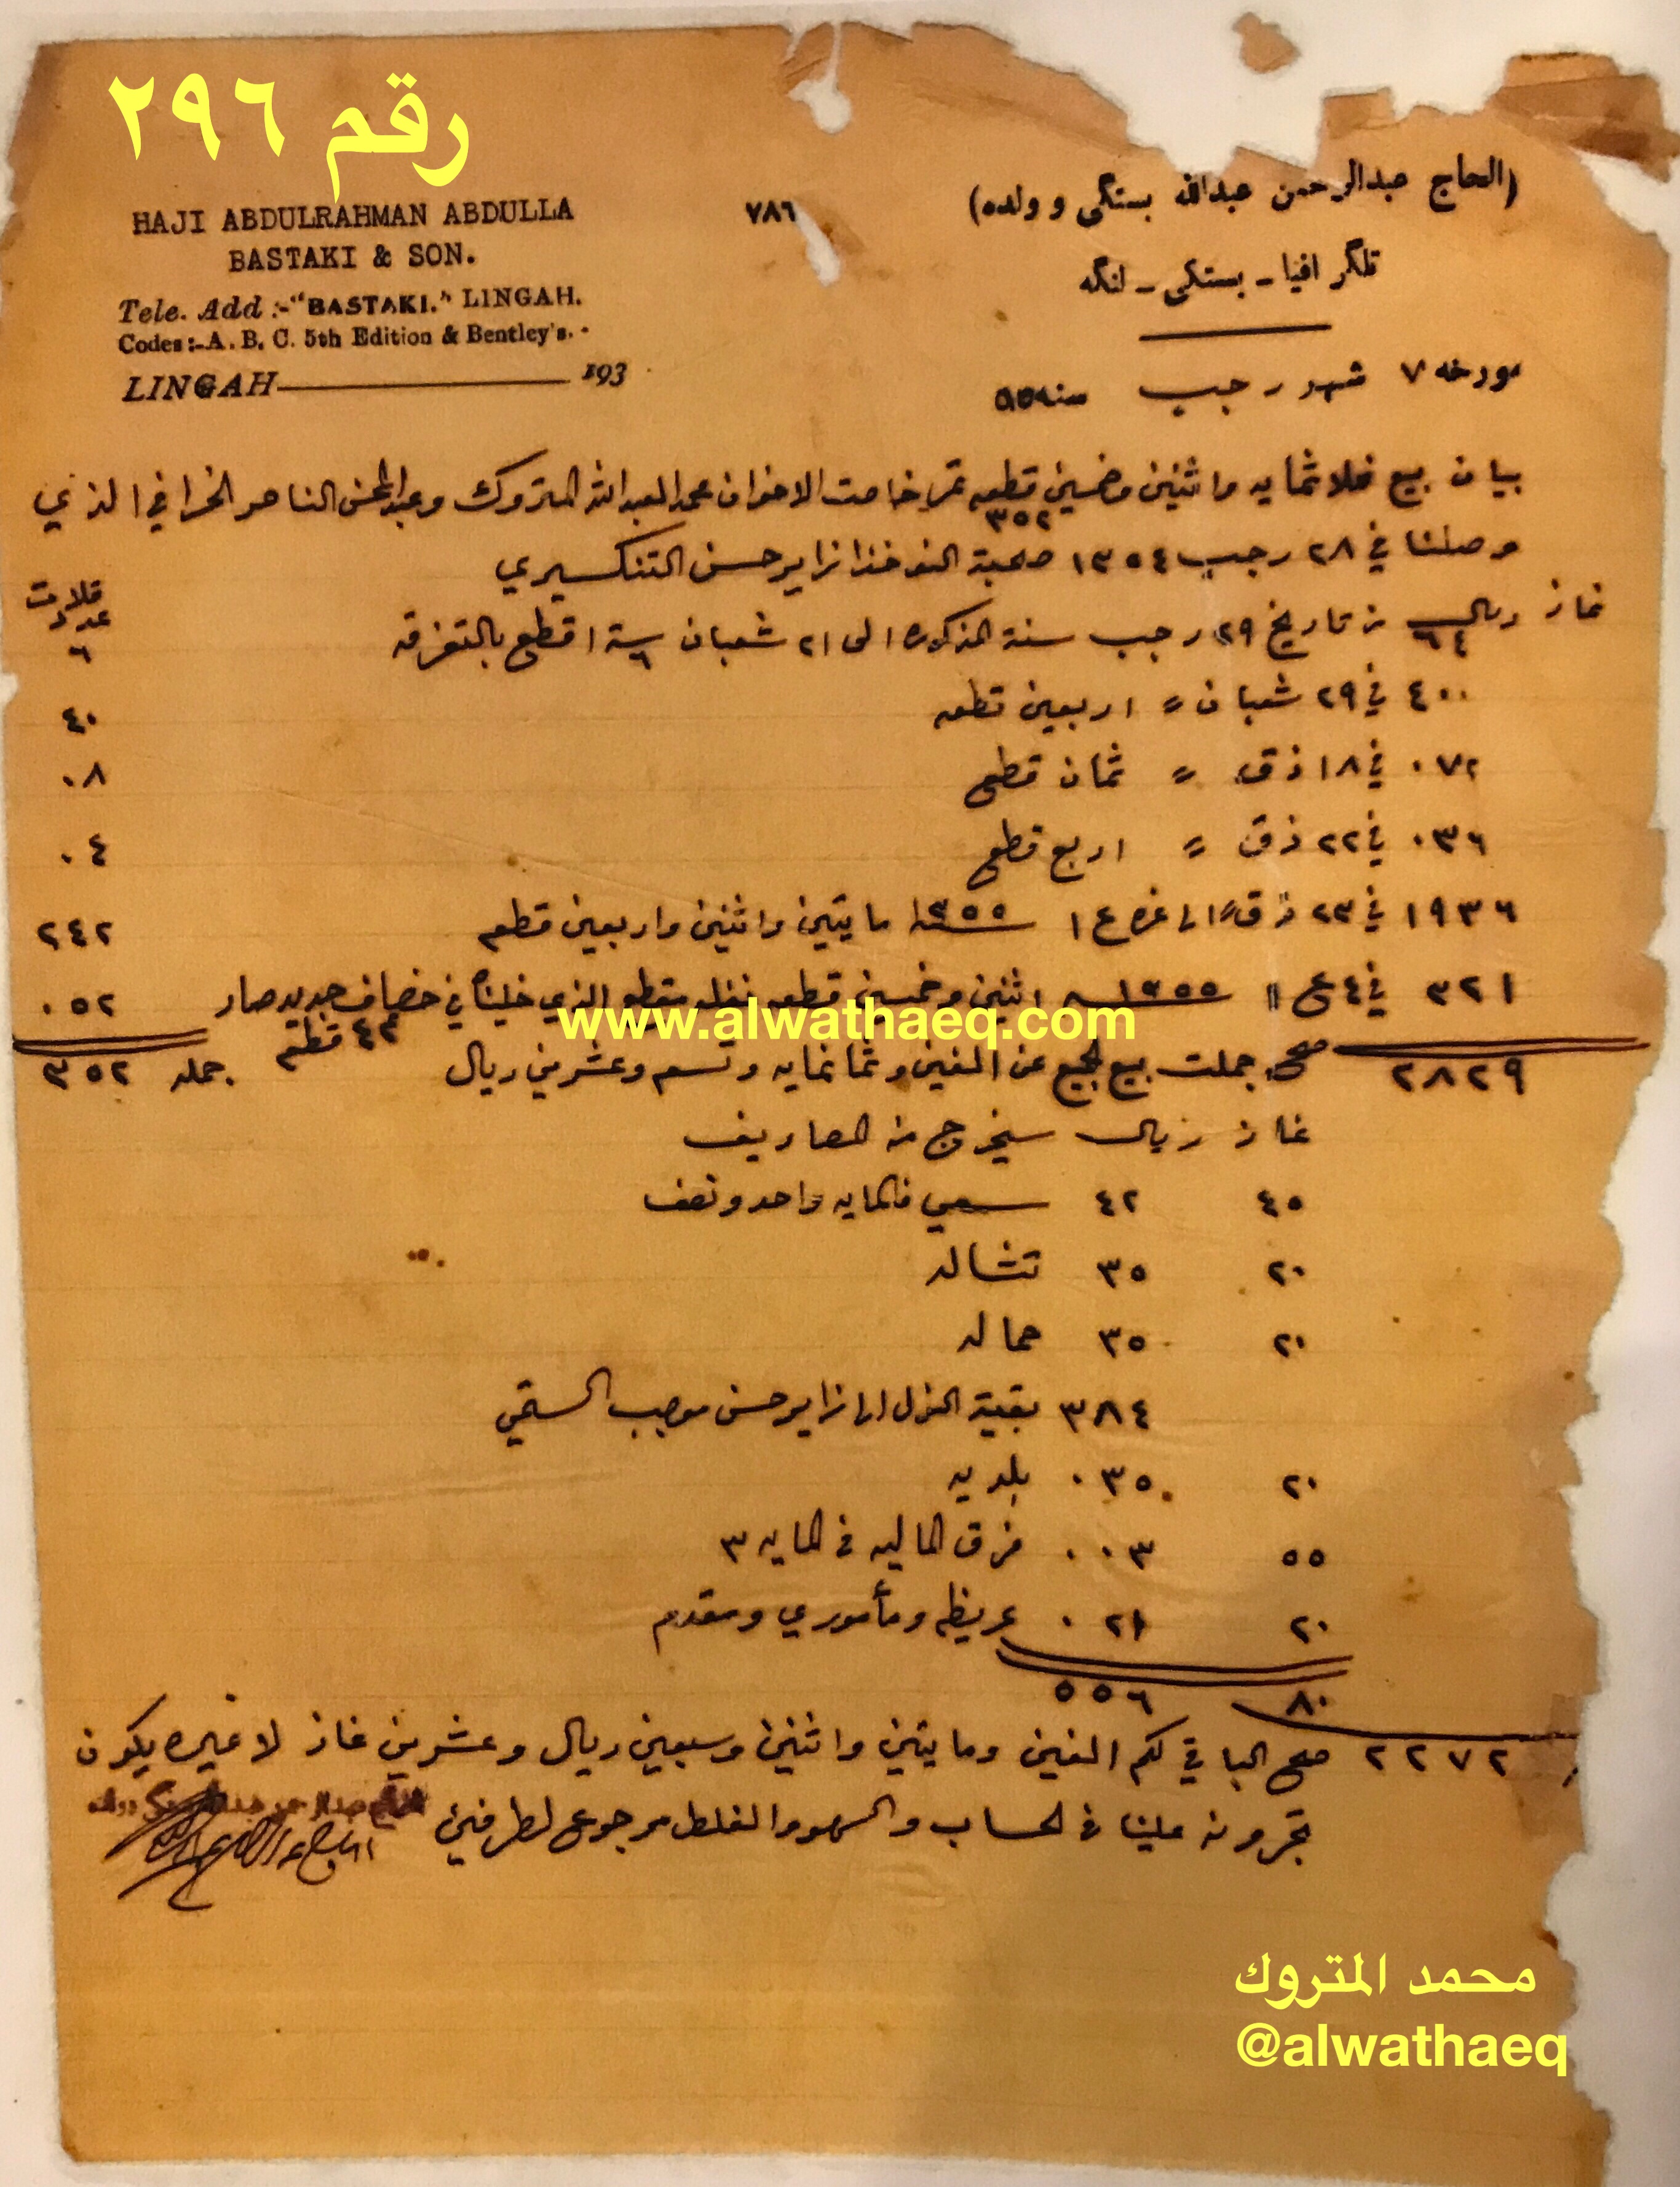 رقم ٢٩٦
HAJI ABDULRAHMAN ABDULLA
BASTAKI & SON.
Tele. Add :-"BASTAKI." LINGAH.
Codes:-A. B. C. 5th Edition & Bentley's.
LINGAH 193
٧٨٦
(الحاج عبدالرحمن عبدالله بستكي و ولده)
تلگرافيا - بستكي - لنگه
مورخه ٧ شهر رجب سنه ٥٥
بيان بيع ثلاثمايه واثنين وخمسين قطعه تمر خاصت الاخوان محمد العبدالله المتروك وعبدالمحسن الناصر الخرافي الذي
٣٥٢
وصلنا في ٢٨ رجب ١٣٥٤ صحبة النوخذا زاير حسن التنكسيري
قلات
عدد
غاز ريال من تاريخ ٢٩ رجب سنة المذكوره الى ٢١ شعبان ستة اقطع بالتفرقه ٦
٦٤ ٦
٤٠٠ في ٢٩ شعبان " اربعين قطعه ٤٠
٠٧٢ في ١٨ ذق " ثمان قطع ٠٨
٠٣٦ في ٢٢ ذق " اربع قطع ٠٤
١٩٣٦ في ٢٣ ذق " الى غره ع١ ١٣٥٥ مايتين واثنين واربعين قطعه ٢٤٢
٣٢١ في ٤ ع١ ١٣٥٥ اثنين وخمسين قطعه الذي خليناه في خصاف جديد صار ٠٥٢
٤٣ قطعه
٢٨٢٩ صح جملت بيع الجميع عن الفين وثمانمايه وتسع وعشرين ريال جمله ٣٥٢
غاز ريال سيخرج من المصاريف
٤٥ ٤٢ سعي فالمايه واحد ونصف
٢٠ ٣٥ تشاله
٢٠ ٣٥ حماله
٣٨٤ بقية النول الى زاير حسن موجب الستمي
٢٠ ٠٣٥ بلديه
٥٥ ٠٠٣ فرق الماليه في المايه ٣
٢٠ ٠٢١ عريظه ومأموري ومقدم
٨٠ ٥٥٦
٢٢٧٢ صح الباقي لكم الفين ومايتين واثنين وسبعين ريال وعشرين غاز لا غيره يكون
تجرونه علينا في الحساب والسهو والغلط مرجوع لطرفين
www.alwathaeq.com
محمد المتروك
@alwathaeq